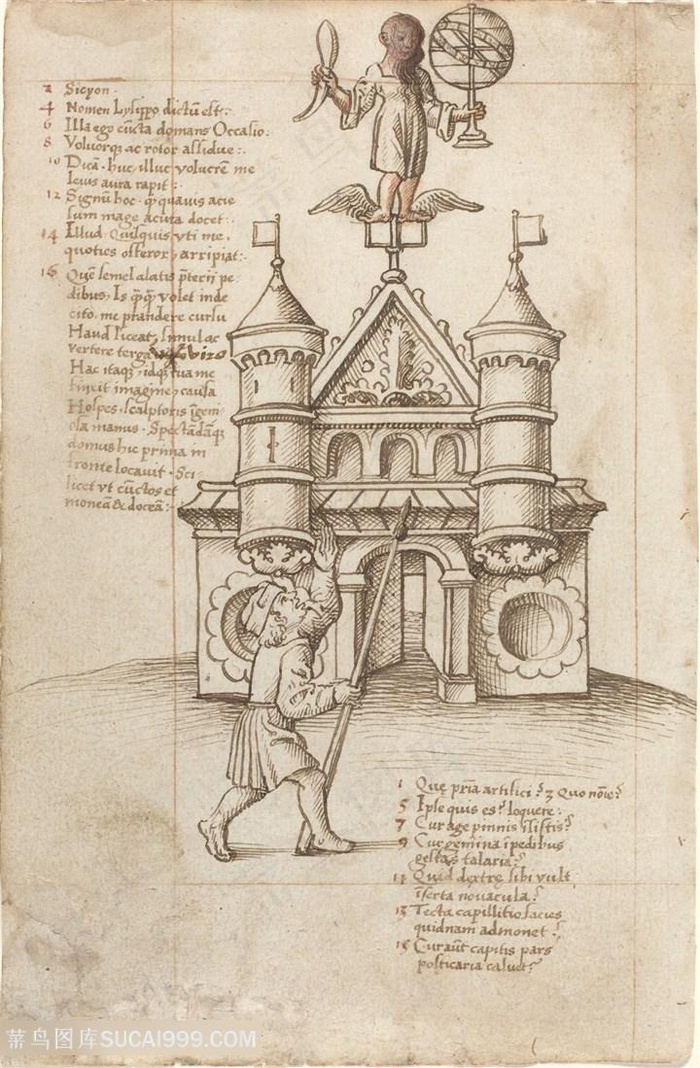 2 Sicyon.
4 Nomen Lysippo dictū est:.
6 Illa ego cūcta domans Occasio.
8 Voluorq; ac rotor assidue:.
10 Dicā. huc, illuc volucrē me
leuis aura rapit:.
12 Signū hoc. quauis acie
sum mage acuta docet:.
14 Illud. Quisquis vti me,
quoties offeror, arripiat:.
16 Quē semel alatis pterii pe
dibus, Is volet inde
cito, me prandere cursu
Haud liceat, simul ac
vertere terga
Hac itaq; idq; tua me
finxit imagine, causa
Hospes, scalptoris īgeni
osa manus. Spectādāq;
domus hic prima in
fronte locauit. Sci
licet vt cūctos et
moneā & doceā:.
1 Quę pria artifici? Quo noīe?
5 Ipse quis es? loquere:.
7 Cur age pinnis īsistis?
9 Cur gemina ī pedibus
gestas talaria?
11 Quid dextrę sibi vult
īserta novacula?
13 Tecta capillitio facies
quidnam admonet?
15 Cur aūt capitis pars
posticaria caluet?
菜鸟图库SUCAI999.COM